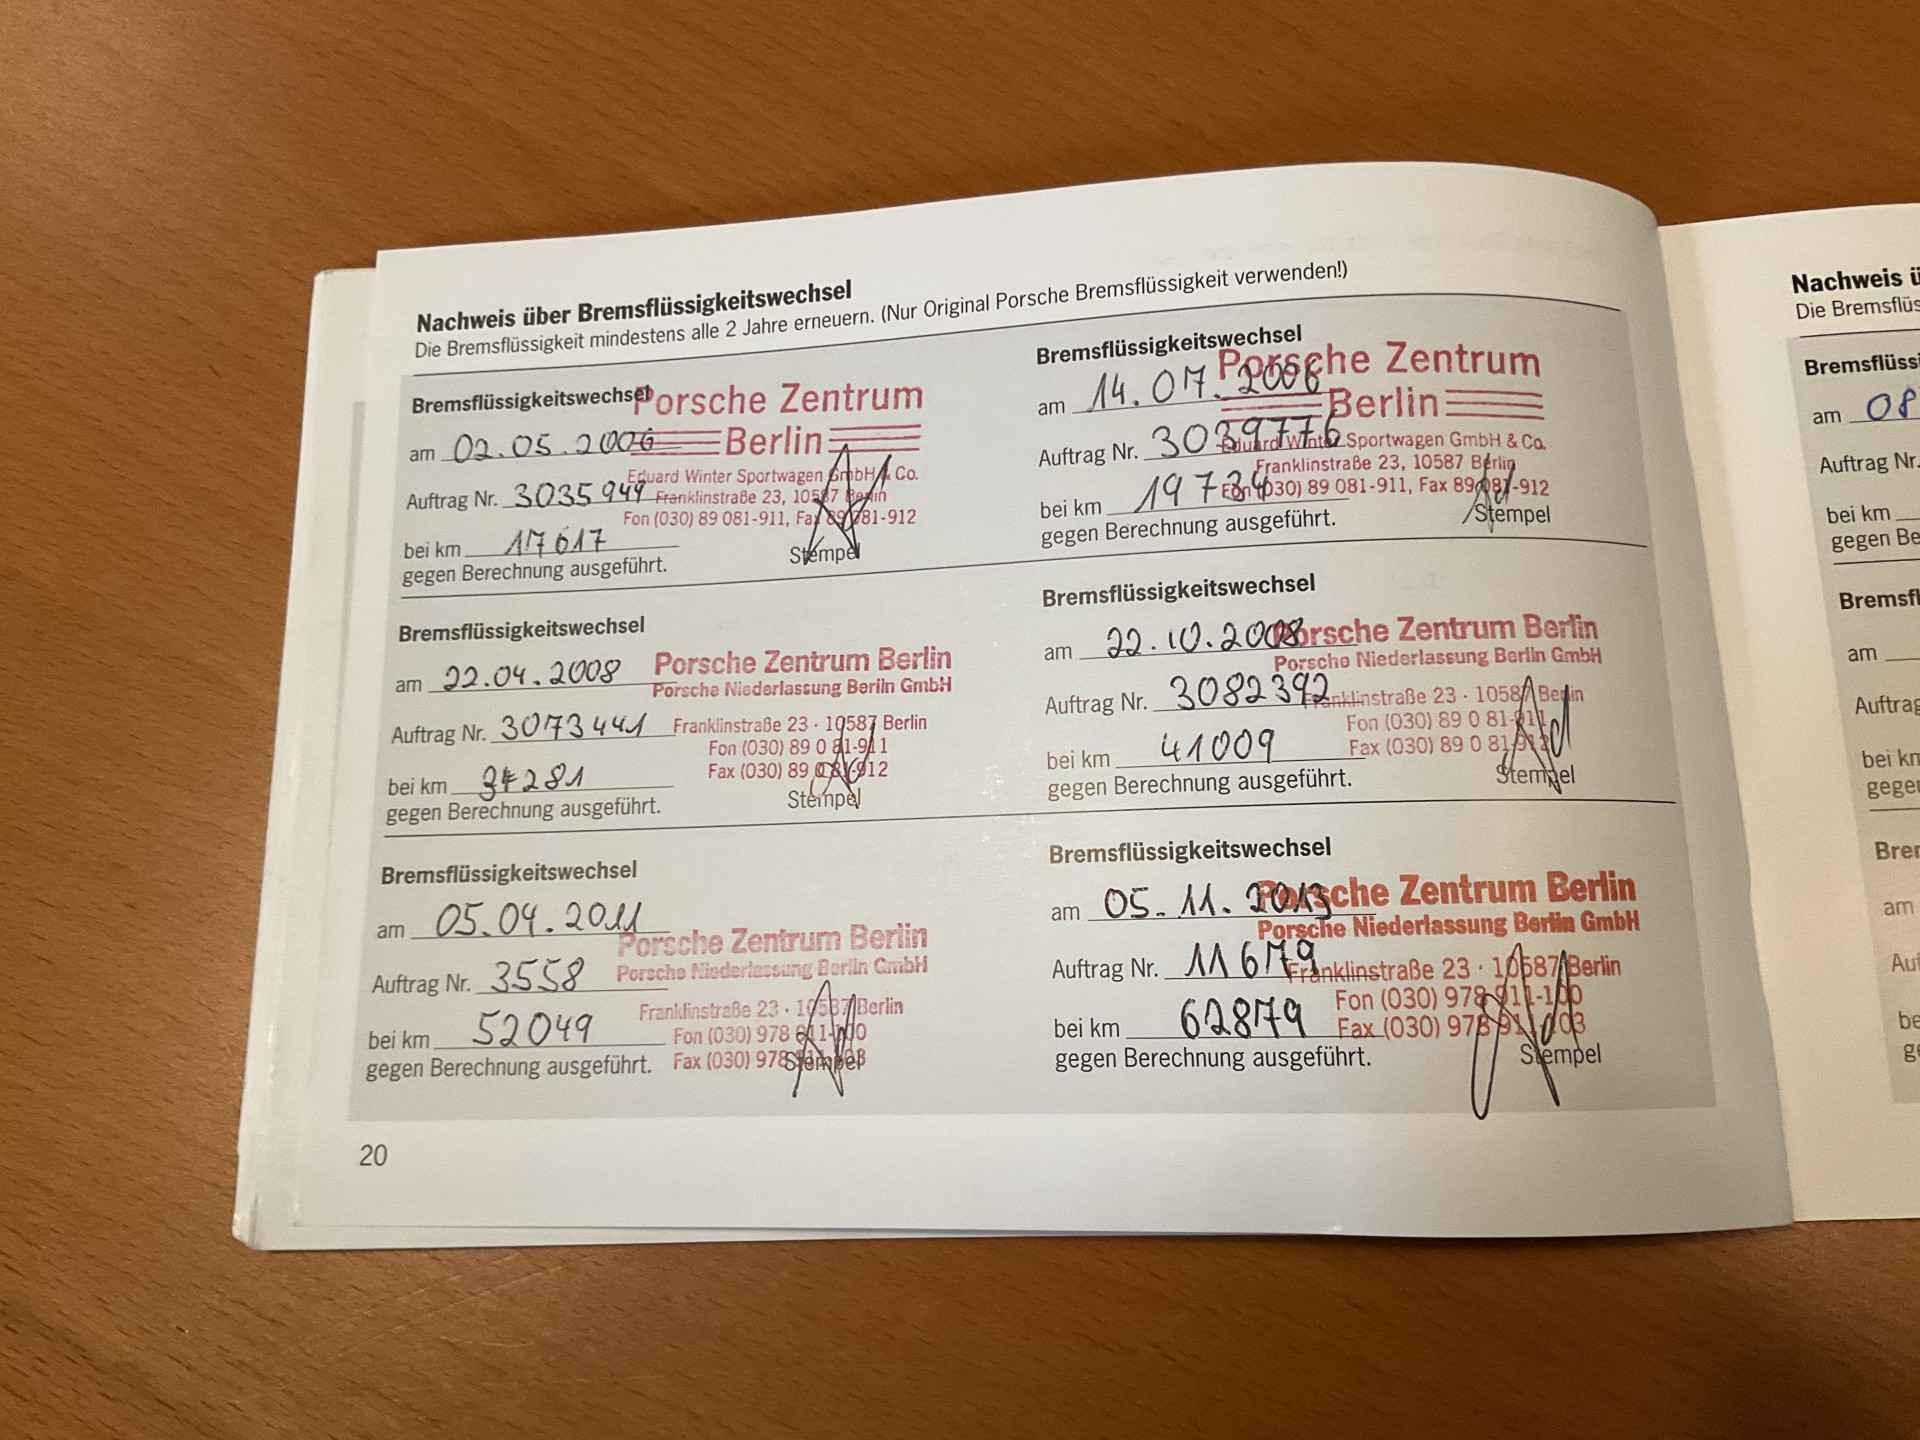 Nachweis über Bremsflüssigkeitswechsel
Die Bremsflüssigkeit mindestens alle 2 Jahre erneuern. (Nur Original Porsche Bremsflüssigkeit verwenden!)
Bremsflüssigkeitswechsel
am 02.05.2006
Auftrag Nr. 3035949
bei km 17617
gegen Berechnung ausgeführt.
Porsche Zentrum
Berlin
Eduard Winter Sportwagen GmbH & Co.
Franklinstraße 23, 10587 Berlin
Fon (030) 89 081-911, Fax 89 081-912
Stempel
Bremsflüssigkeitswechsel
am 14.07.2006
Auftrag Nr. 3039776
bei km 19734
gegen Berechnung ausgeführt.
Porsche Zentrum
Berlin
Eduard Winter Sportwagen GmbH & Co.
Franklinstraße 23, 10587 Berlin
Fon (030) 89 081-911, Fax 89 081-912
Stempel
Bremsflüssigkeitswechsel
am 22.04.2008
Auftrag Nr. 3073441
bei km 37281
gegen Berechnung ausgeführt.
Porsche Zentrum Berlin
Porsche Niederlassung Berlin GmbH
Franklinstraße 23 · 10587 Berlin
Fon (030) 89 0 81-911
Fax (030) 89 0 81-912
Stempel
Bremsflüssigkeitswechsel
am 22.10.2008
Auftrag Nr. 3082392
bei km 41009
gegen Berechnung ausgeführt.
Porsche Zentrum Berlin
Porsche Niederlassung Berlin GmbH
Franklinstraße 23 · 10587 Berlin
Fon (030) 89 0 81-911
Fax (030) 89 0 81-912
Stempel
Bremsflüssigkeitswechsel
am 05.04.2011
Auftrag Nr. 3558
bei km 52049
gegen Berechnung ausgeführt.
Porsche Zentrum Berlin
Porsche Niederlassung Berlin GmbH
Franklinstraße 23 · 10587 Berlin
Fon (030) 978 911-100
Fax (030) 978
Stempel
Bremsflüssigkeitswechsel
am 05.11.2013
Auftrag Nr. 11679
bei km 62879
gegen Berechnung ausgeführt.
Porsche Zentrum Berlin
Porsche Niederlassung Berlin GmbH
Franklinstraße 23 · 10587 Berlin
Fon (030) 978 911-100
Fax (030) 978 911-103
Stempel
20
Nachweis ü
Die Bremsflüs
Bremsflüssi
am 08
Auftrag Nr.
bei km
gegen Be
Bremsfl
am
Auftrag
bei kn
gege
Brer
am
Au
be
g